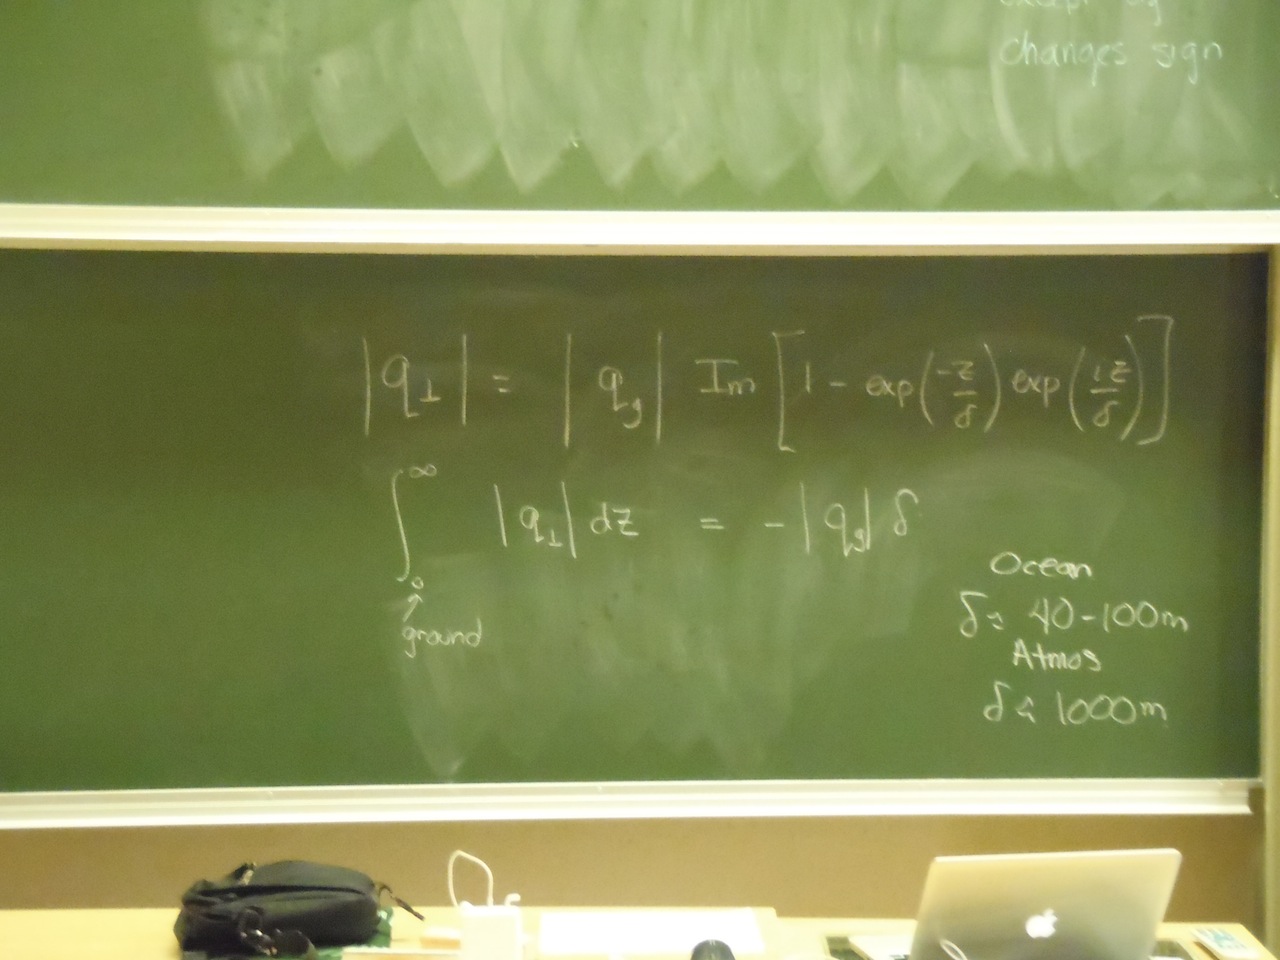 changes sign
|q⊥| = |q_g| Im [1 - exp(-z/δ) exp(iz/δ)]
∫₀^∞ |q⊥| dz = -|q_g| δ
↑
ground
Ocean
δ ≈ 40-100m
Atmos
δ ≈ 1000m